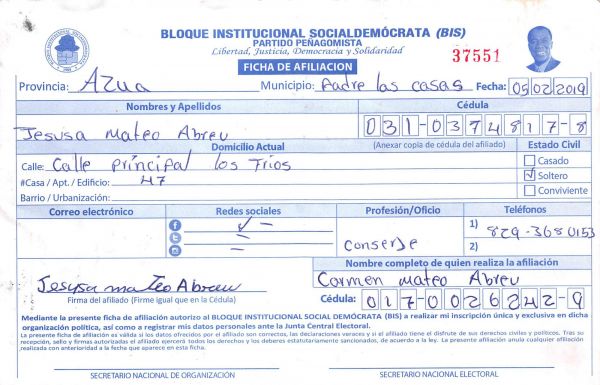 BLOQUE INSTITUCIONAL SOCIALDEMÓCRATA (BIS)
PARTIDO PEÑAGOMISTA
Libertad, Justicia, Democracia y Solidaridad
37551
FICHA DE AFILIACION
Provincia: Azua Municipio: Padre las casas Fecha: 05/02/2019
Nombres y Apellidos Cédula
Jesusa Mateo Abreu 031-0374817-8
Domicilio Actual (Anexar copia de cédula del afiliado) Estado Civil
Calle: Calle principal los Trios Casado
#Casa / Apt. / Edificio: 47 Soltero
Barrio / Urbanización: Conviviente
Correo electrónico Redes sociales Profesión/Oficio Teléfonos
1) 829-3680153
Conserje 2)
Nombre completo de quien realiza la afiliación
Jesusa mateo Abreu Carmen Mateo Abreu
Firma del afiliado (Firme igual que en la Cédula) Cédula: 017-0026242-9
Mediante la presente ficha de afiliación autorizo al BLOQUE INSTITUCIONAL SOCIAL DEMÓCRATA (BIS) a realizar mi inscripción única y exclusiva en dicha
organización política, así como a registrar mis datos personales ante la Junta Central Electoral.
La presente ficha de afiliación es válida si los datos ofrecidos por el afiliado son correctos, las declaraciones veraces y si el titular tiene el disfrute de sus derechos civiles y políticos. Tras su
recepción, sello y firmas autorizadas el afiliado ejercerá todos los derechos y los deberes estatutariamente sancionados, de acuerdo a la ley. La presente afiliación anula cualquier afiliación
realizada con anterioridad a la fecha que aparece en esta ficha.
SECRETARIO NACIONAL DE ORGANIZACIÓN SECRETARIO NACIONAL ELECTORAL